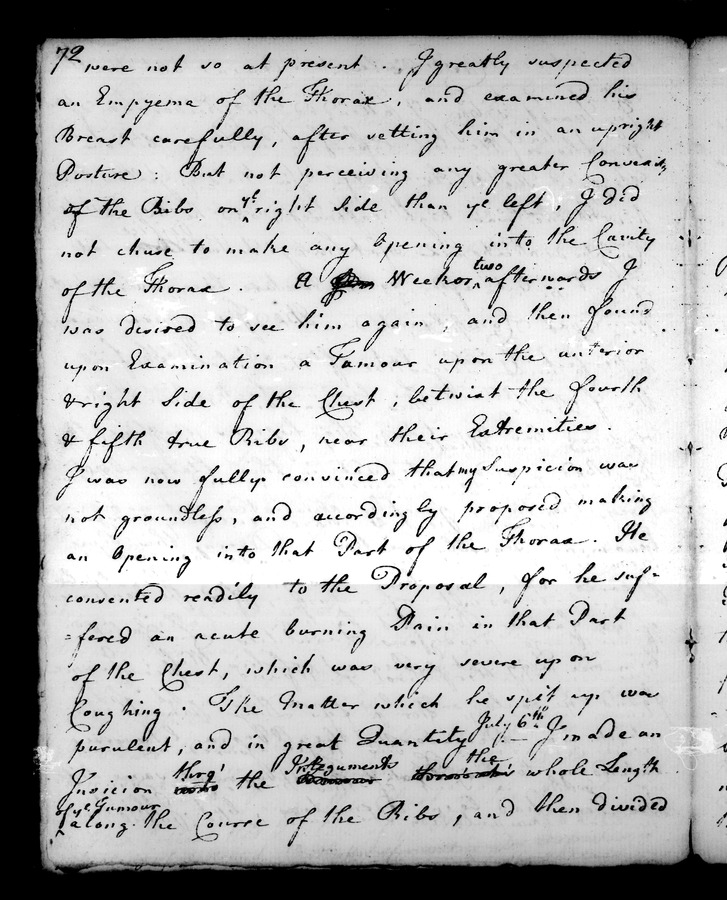 72
were not so at present. I greatly suspected
an Empyema of the Thorax, and examined his
Breast carefully, after setting him in an upright
Posture: But not perceiving any greater Convexity
of the Ribs on ye right Side than ye left, I did
not chuse to make any Opening into the Cavity
of the Thorax. A Week or two afterwards I
was desired to see him again, and then found
upon Examination a Tumour upon the anterior
& right Side of the Chest, betwixt the fourth
& fifth true Ribs, near their Extremities.
I was now fully convinced that my Suspicion was
not groundless, and accordingly proposed making
an Opening into that Part of the Thorax. He
consented readily to the Proposal, for he suf-
=fered an acute burning Pain in that Part
of the Chest, which was very severe upon
Coughing. The Matter which he spit up was
purulent, and in great Quantity. July 6th I made an
Incision thro' the Integuments the whole Length
of ye Tumour along the Course of the Ribs, and then divided